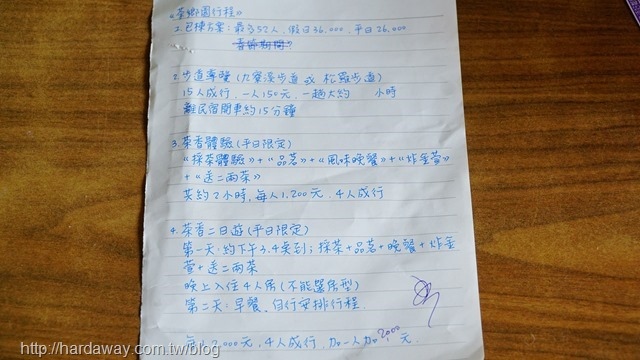 《茶鄉園行程》
1.包棟方案：最多52人，假日36,000，平日26,000
春節期間？
2.步道導覽（九寮溪步道 或 松羅步道）
15人成行，一人150元，一趟大約 小時
離民宿開車約15分鐘
3.茶香體驗（平日限定）
"採茶體驗"+"品茗"+"風味晚餐"+"炸金萱"
+"送二兩茶"
共約2小時，每人1,200元，4人成行
4.茶香二日遊（平日限定）
第一天：約下午3.4點到；採茶+品茗+晚餐+炸金
萱+送二兩茶
晚上入住4人房（不能選房型）
第二天：早餐，自行安排行程
每人2,000元，4人成行，加一人加2000元
http://hardaway.com.tw/blog